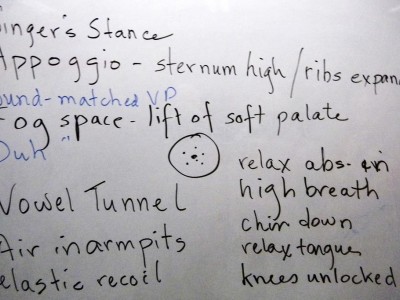 Singer's Stance
Appoggio - sternum high / ribs expan
ound-matched VP
Fog space - lift of soft palate
Duh"
relax abs. in
Vowel Tunnel
high breath
chin down
Air in armpits
relax tongue
elastic recoil
knees unlocked